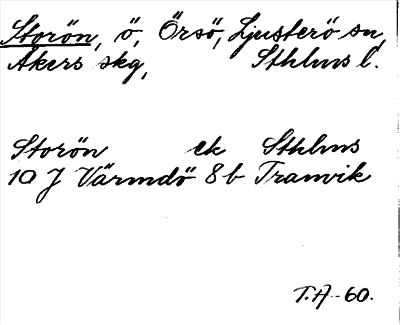 Storön, ö, Örsö, Ljusterö sn,
Åkers skg, Sthlms l.
Storön ek Sthlms
10 J Värmdö 8b Tranvik
T.A-60.